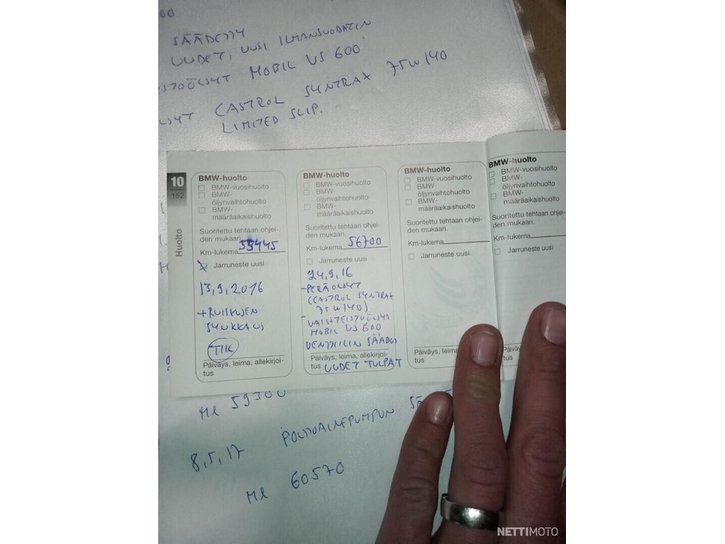 SÄÄDETTY
UUDET, UUSI ILMANSUODATIN
MOBIL VS 600
CASTROL SYNTRAX 75W140
LIMITED SLIP.
10
152
Huolto
BMW-huolto
BMW-vuosihuolto
BMW-
öljynvaihtohuolto
BMW-
määräaikaishuolto
Suoritettu tehtaan ohjei-
den mukaan.
Km-lukema
Jarruneste uusi
x
13,9,2016
+ RUISKUJEN
SYNKKAUS
TIK
Päiväys, leima, allekirjoi-
tus
BMW-huolto
BMW-vuosihuolto
BMW-
öljynvaihtohuolto
BMW-
määräaikaishuolto
Suoritettu tehtaan ohjei-
den mukaan.
Km-lukema 56700
Jarruneste uusi
24,9,16
- PERÄÖLJYT
(CASTROL SYNTRAX
75W140)
- VAIHTEISTOÖLJYT
MOBIL VS 600
VENTTIILIN SÄÄDÖT
Päiväys, leima, allekirjoi-
tus UUDET TULPAT
BMW-huolto
BMW-vuosihuolto
BMW-
öljynvaihtohuolto
BMW-
määräaikaishuolto
Suoritettu tehtaan ohjei-
den mukaan.
Km-lukema
Jarruneste uusi
Päiväys, leima, allekirjoi-
tus
BMW-huolto
BMW-vuosihuolto
BMW-
öljynvaihtohuolto
BMW-
määräaikaishuolto
Suoritettu tehtaan ohjei-
den mukaan.
Km-lukema
Jarruneste uusi
Ml 59300
8,5,17 POLTTOAINEPUMPUN
Ml 60570
NETTIMOTO